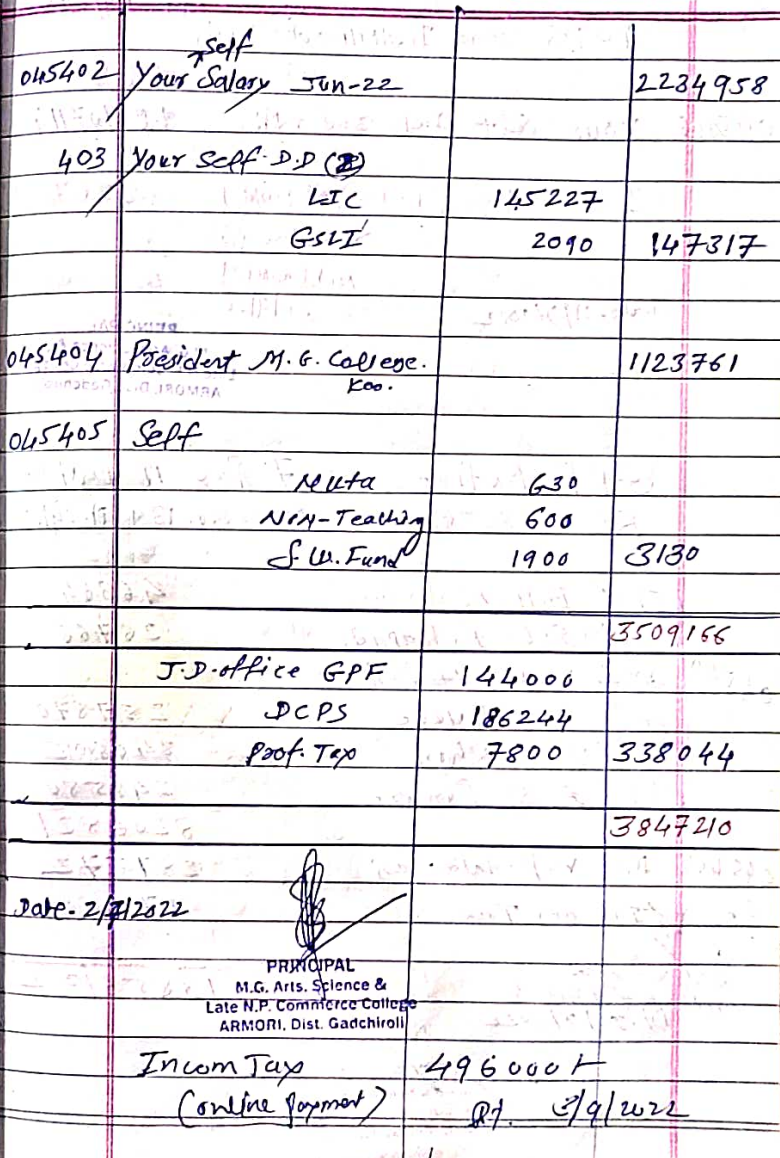 self
045402 Your Salary Jun-22 2234958
403 Your Self D.D (2)
LIC 145227
GSLI 2090 147317
045404 President M.G. College. 1123761
Koo.
045405 Self
Nuta 630
Non-Teaching 600
S.W. Fund 1900 3130
3509166
J.D. office GPF 144000
DCPS 186244
Prof. Tax 7800 338044
3847210
Date - 2/7/2022
PRINCIPAL
M.G. Arts. Science &
Late N.P. Commerce College
ARMORI, Dist. Gadchiroli
Incom Tax 496000
(online Payment) Dt. 3/9/2022